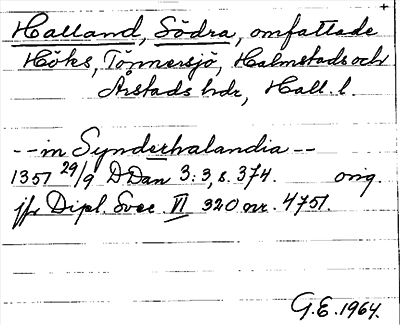 +
Halland, Södra, omfattade
Höks, Tönnersjö, Halmstads och
Årstads hdr, Hall. l.
-- in Synderhalandia --
1351 29/9 DDan 3:3, s. 374. orig.
jfr Dipl. Svec. VI 320 nr. 4751.
G.E. 1964.